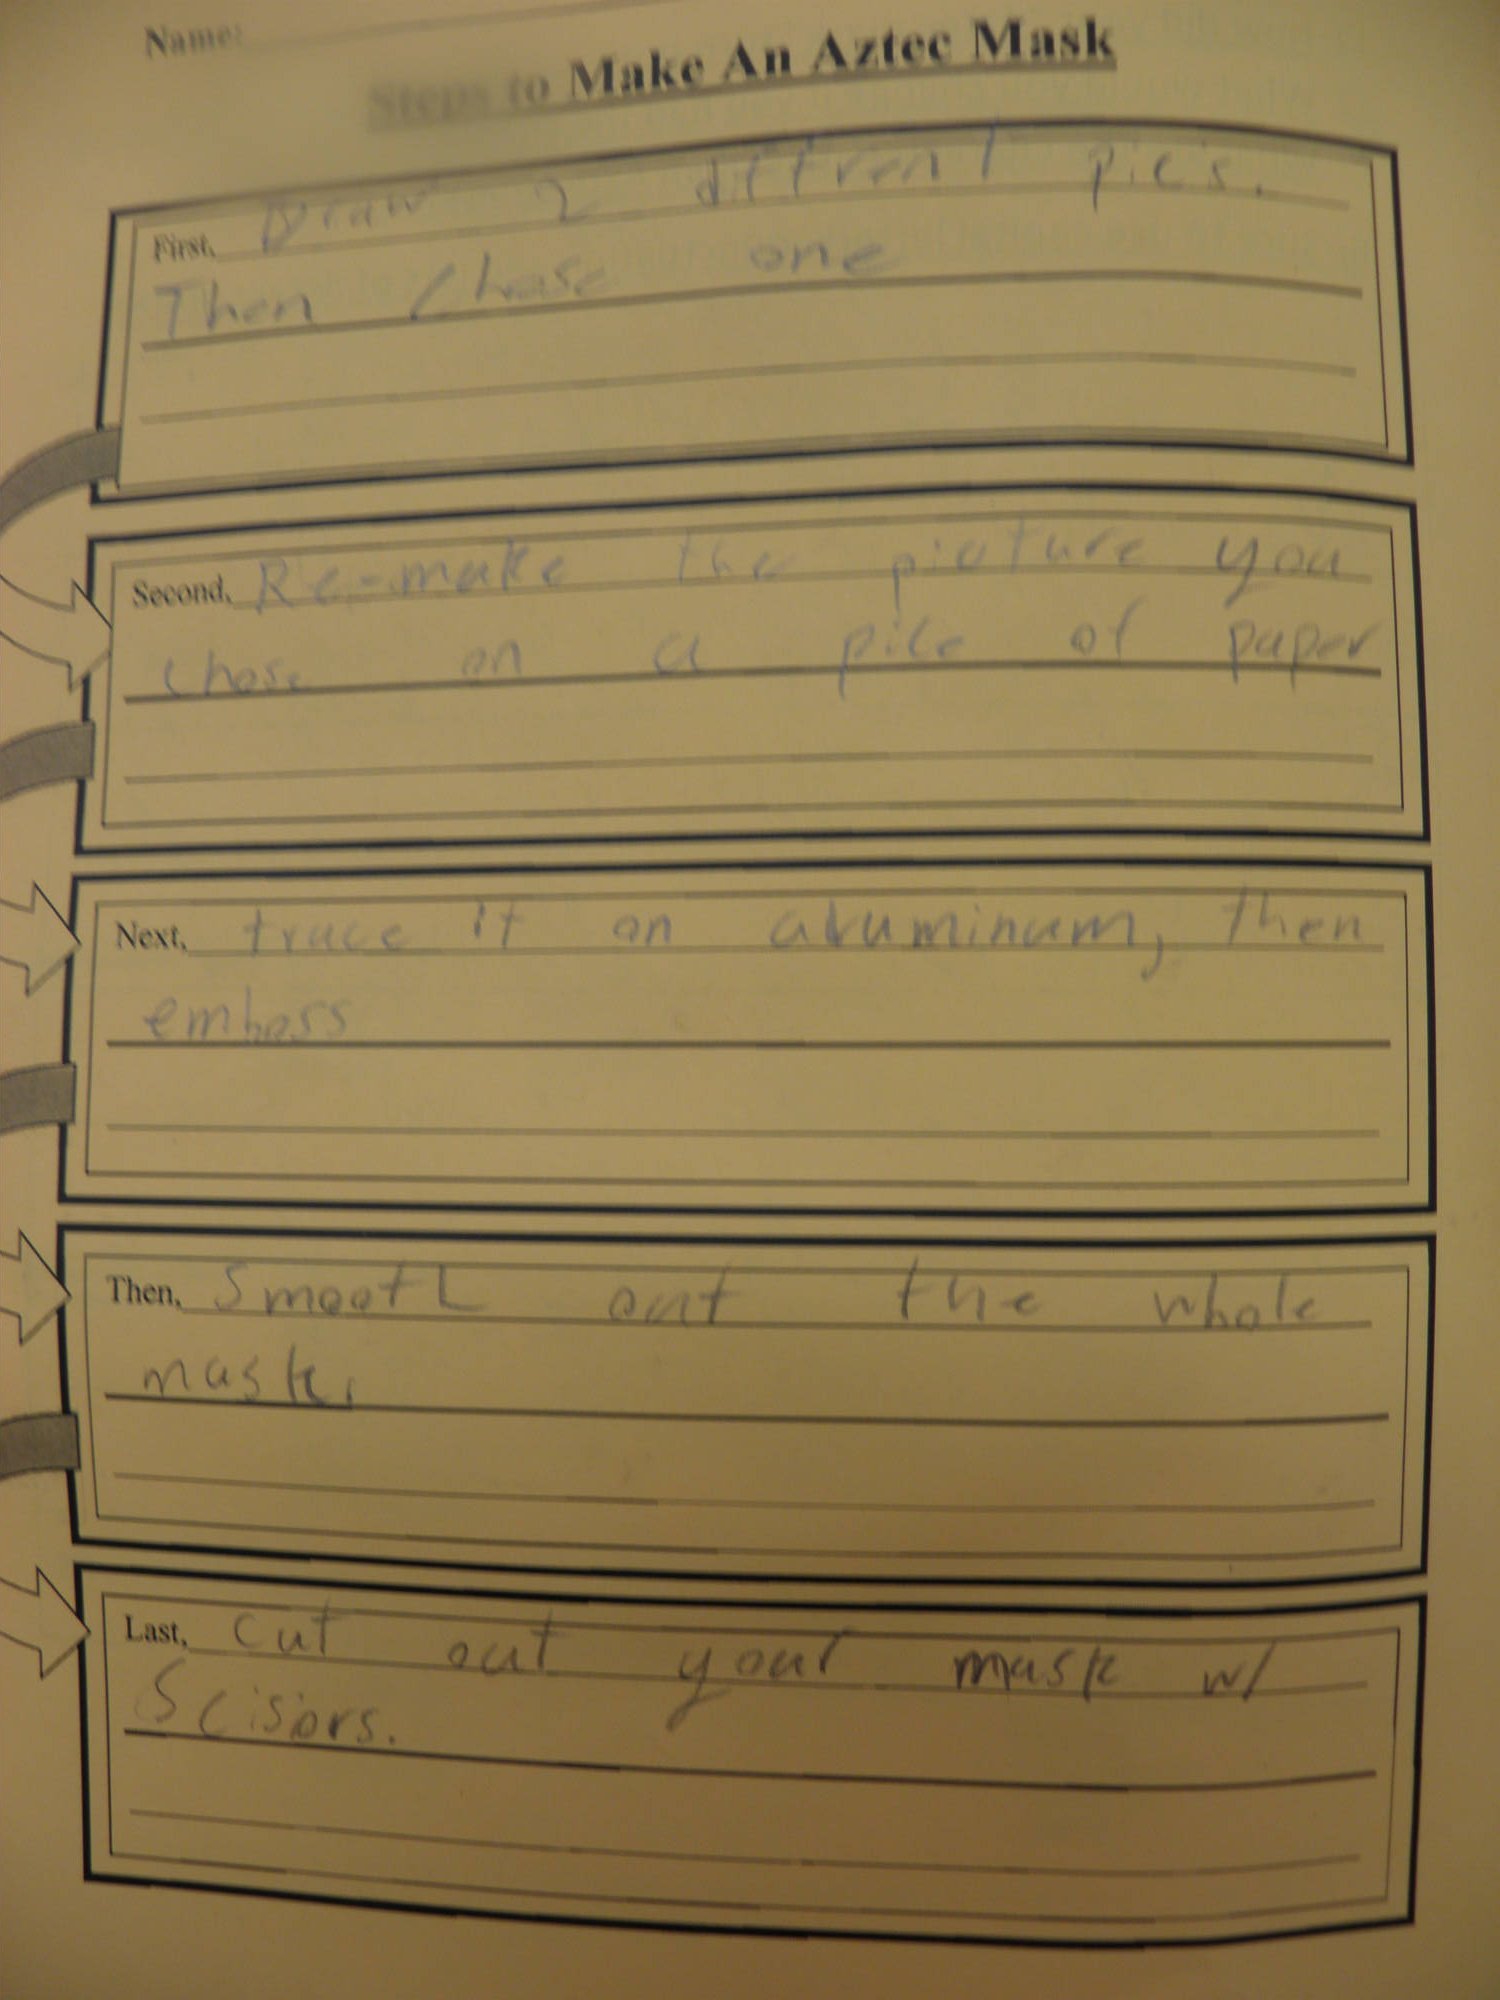 Name:
Steps to Make An Aztec Mask
First, Draw 2 diffrent pics.
Then Chose one
Second, Re-make the picture you
chose on a pice of paper
Next, trace it on aluminum, then
emboss
Then, Smooth out the whole
mask.
Last, cut out your mask w/
Scisiors.